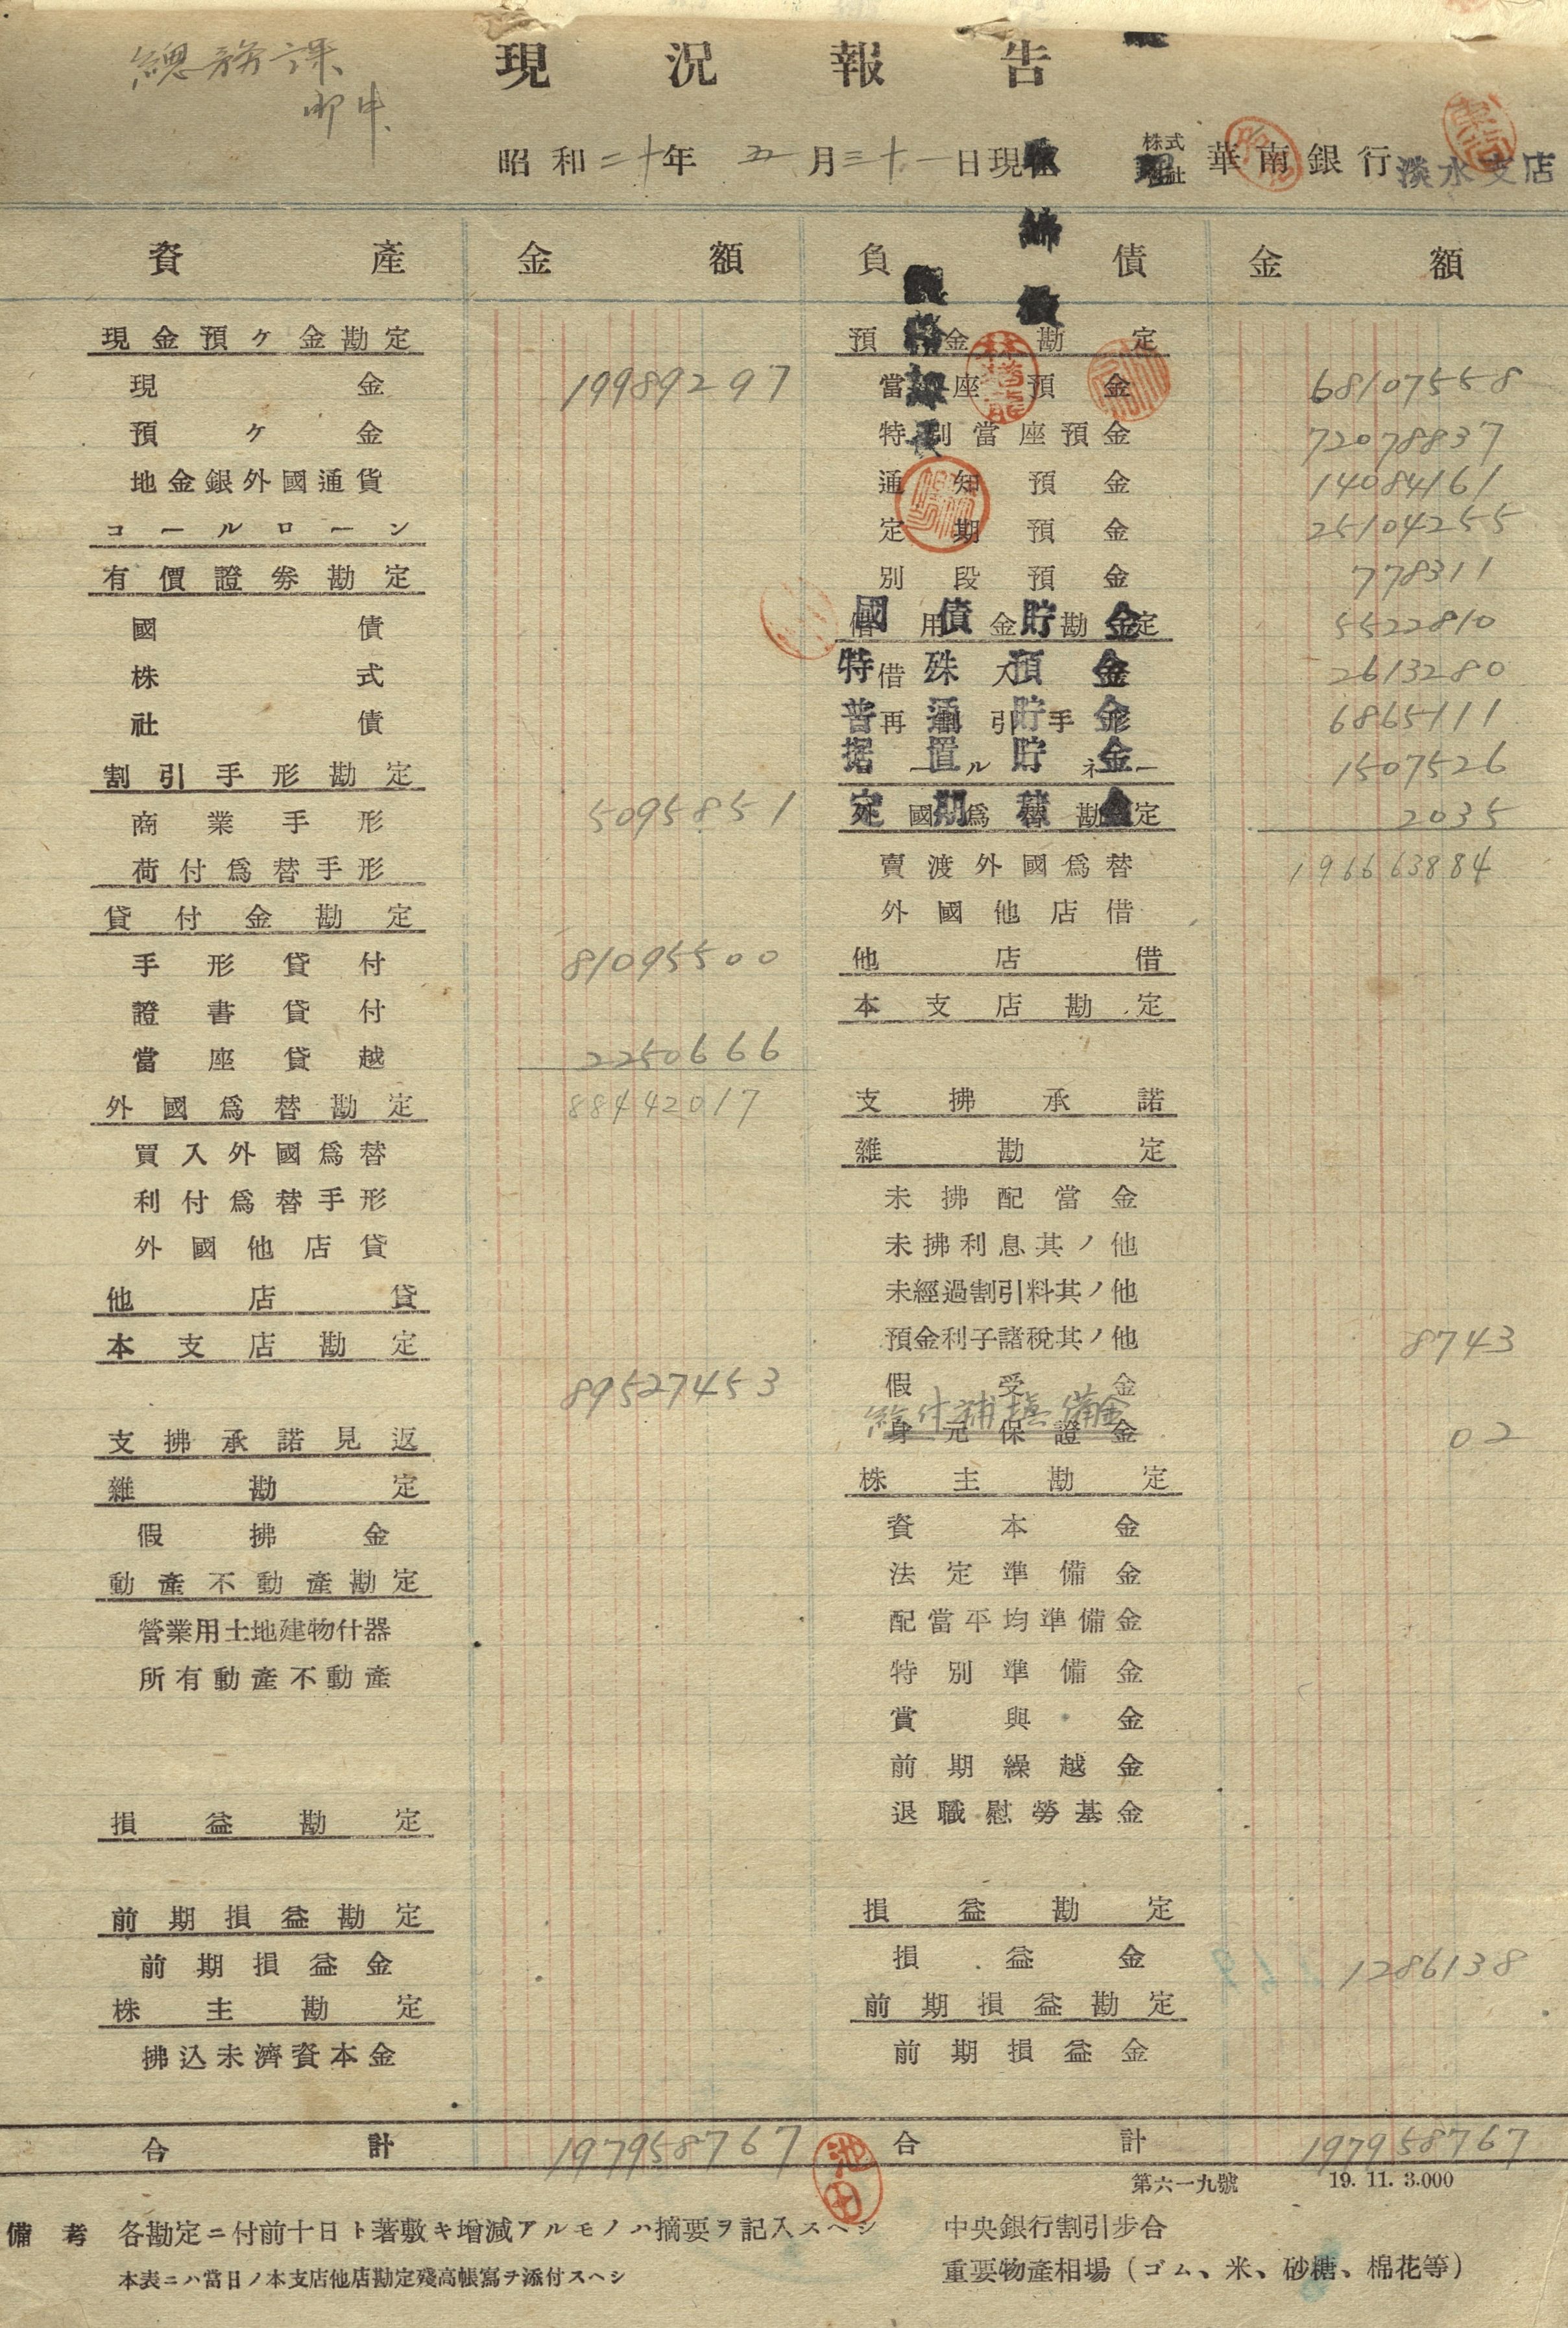 總務課
御中
現況報告
昭和二十年 五月三十一日現在 株式會社 華南銀行 淡水支店
資產 金額 負債 金額
現金預ヶ金勘定
現金 19989297
預ヶ金
地金銀外國通貨
コールローン
有價證劵勘定
國債
株式
社債
割引手形勘定
商業手形 5095851
荷付爲替手形
貸付金勘定
手形貸付 81095500
證書貸付
當座貸越 2250666
88442017
外國爲替勘定
買入外國爲替
利付爲替手形
外國他店貸
他店貸
本支店勘定
89527453
支拂承諾見返
雜勘定
假拂金
動產不動產勘定
營業用土地建物什器
所有動產不動產
損益勘定
前期損益勘定
前期損益金
株主勘定
拂込未濟資本金
合計 197958767
預金勘定
當座預金 68107558
特別當座預金 72078837
通知預金 14084161
定期預金 25104255
別段預金 778311
國債貯金 5522810
借用金勘定
特殊預金 2613280
借入金
普通貯金 6865111
再割引手形
据置貯金 1507526
定期積金 2035
外國爲替勘定
196663884
賣渡外國爲替
外國他店借
他店借
本支店勘定
支拂承諾
雜勘定
未拂配當金
未拂利息其ノ他
未經過割引料其ノ他
預金利子諸稅其ノ他 8743
假受金
給付補塡備金 02
身元保證金
株主勘定
資本金
法定準備金
配當平均準備金
特別準備金
賞與金
前期繰越金
退職慰勞基金
損益勘定
損益金 1286138
前期損益勘定
前期損益金
合計 197958767
池田
第六一九號 19. 11. 3.000
備考 各勘定ニ付前十日ト著敷キ增減アルモノハ摘要ヲ記入スヘシ
本表ニハ當日ノ本支店他店勘定殘高帳寫ヲ添付スヘシ
中央銀行割引步合
重要物產相場(ゴム、米、砂糖、棉花等)